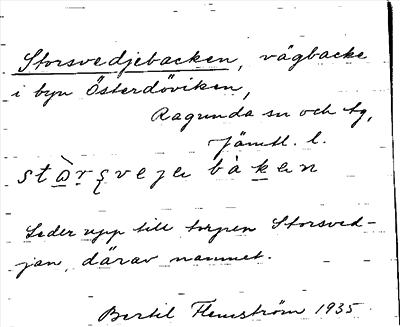 Storsvedjebacken, vägbacke
i byn Österdöviken,
Ragunda sn och tg,
Jämtl. l.
Leder upp till torpen Storsved-
jan, därav namnet.
Bertil Flemström 1935